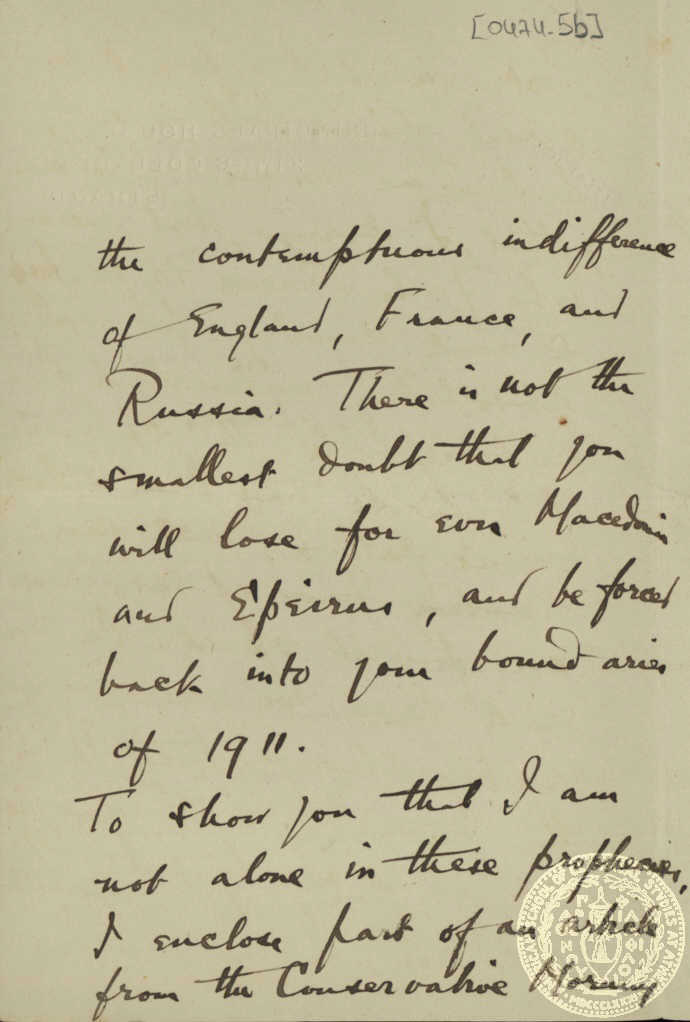 [0474-5b]
the contemptuous indifference
of England, France, and
Russia. There is not the
smallest doubt that you
will lose for ever Macedonia
and Epeirus, and be forced
back into your boundaries
of 1911.
To show you that I am
not alone in these prophecies,
I enclose part of an article
from the Conservative Morning